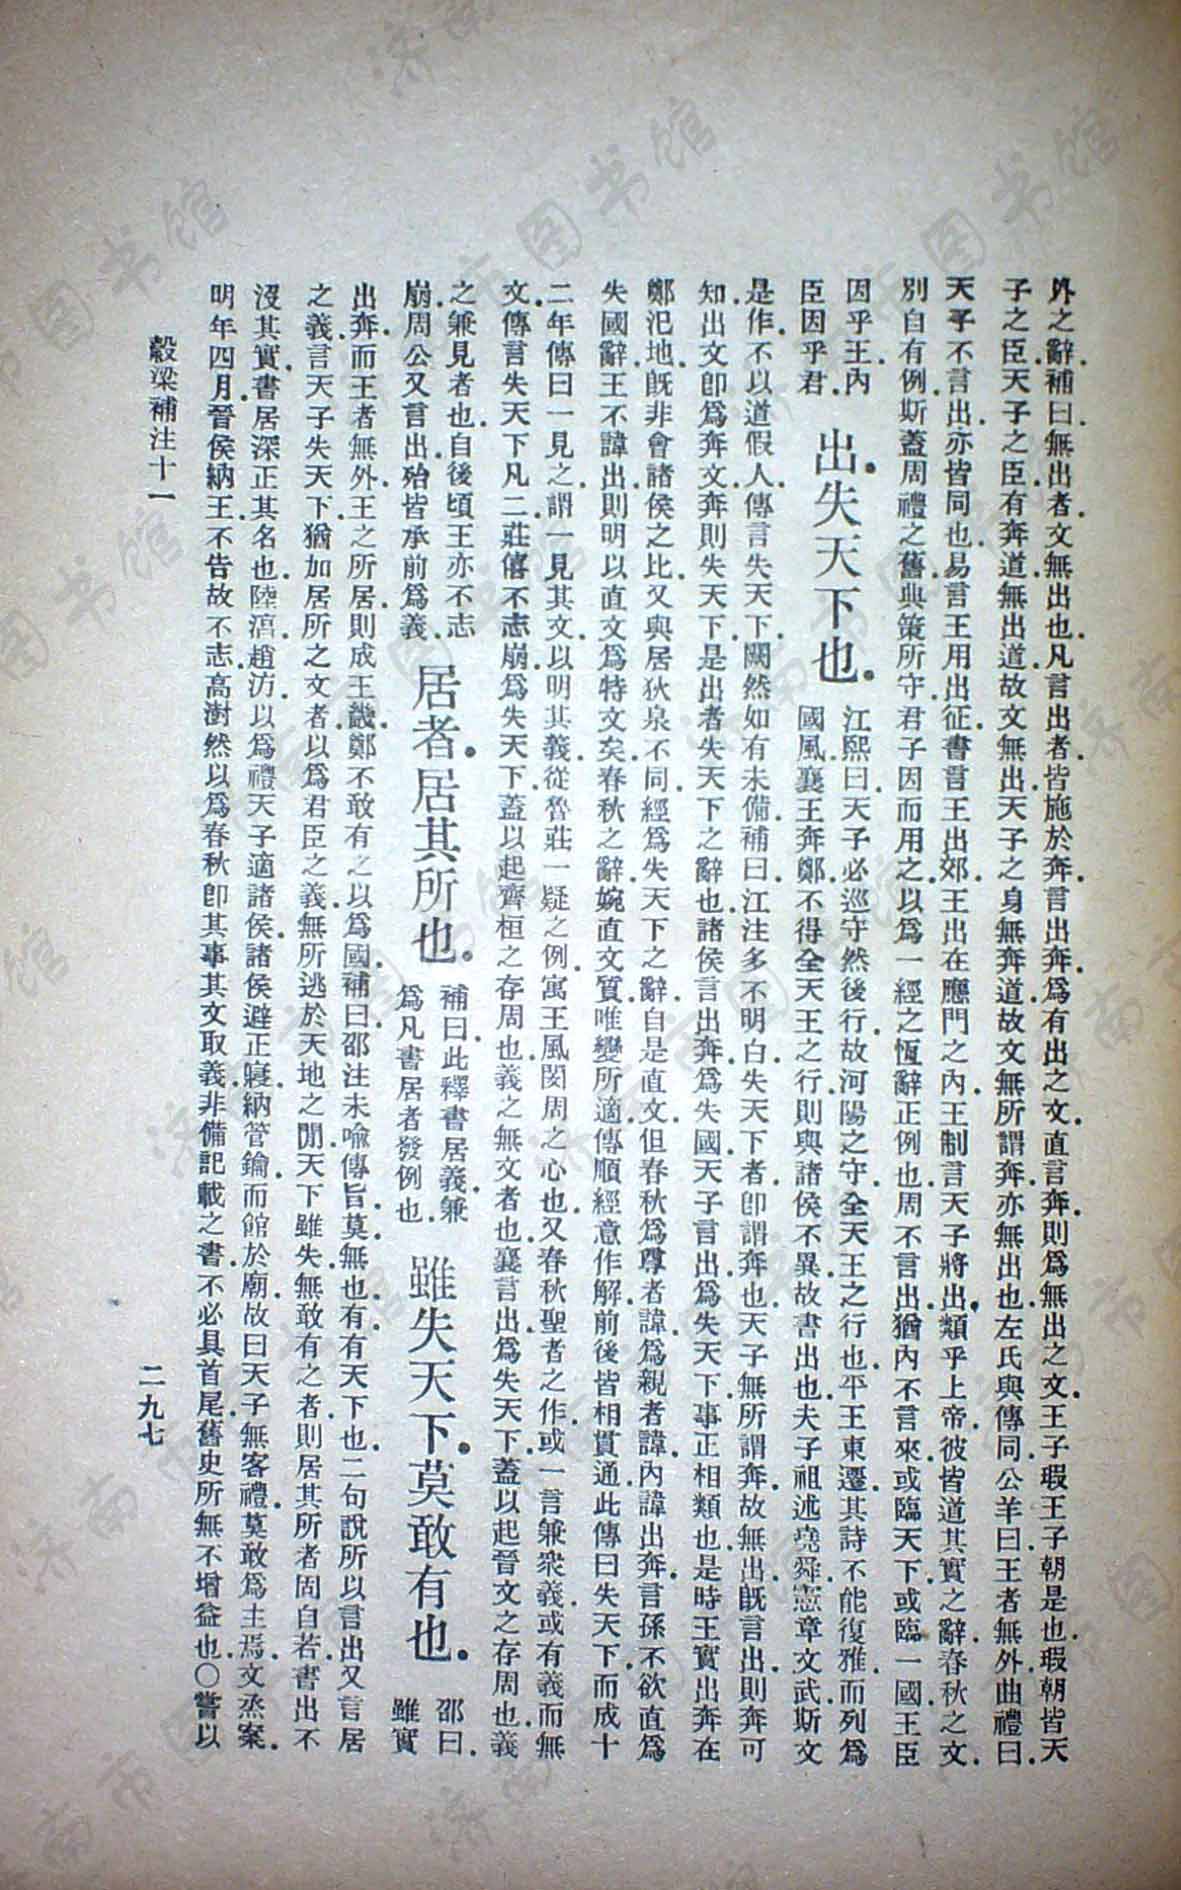 外之辭補曰無出者文無出也凡言出者皆施於奔言出奔爲有出之文直言奔則爲無出之文王子瑕王子朝是也瑕朝皆天
子之臣天子之臣有奔道無出道故文無出天子之身無奔道故文無所謂奔亦無出也左氏與傳同公羊曰王者無外曲禮曰
天子不言出亦皆同也易言王用出征書言王出郊王出在應門之內王制言天子將出類乎上帝彼皆道其實之辭春秋之文
別自有例斯蓋周禮之舊典策所守君子因而用之以爲一經之恆辭正例也周不言出猶內不言來或臨天下或臨一國王臣
因乎王內
臣因乎君
出失天下也
江熙曰天子必巡守然後行故河陽之守全天王之行也平王東遷其詩不能復雅而列爲
國風襄王奔鄭不得全天王之行則與諸侯不異故書出也夫子祖述堯舜憲章文武斯文
是作不以道假人傳言失天下闕然如有未備補曰江注多不明白失天下者卽謂奔也天子無所謂奔故無出旣言出則奔可
知出文卽爲奔文奔則失天下是出者失天下之辭也諸侯言出奔爲失國天子言出爲失天下事正相類也是時王實出奔在
鄭汜地旣非會諸侯之比又與居狄泉不同經爲失天下之辭自是直文但春秋爲尊者諱爲親者諱內諱出奔言孫不欲直爲
失國辭王不諱出則明以直文爲特文矣春秋之辭婉直文質唯變所適傳順經意作解前後皆相貫通此傳曰失天下而成十
二年傳曰一見之謂一見其文以明其義從魯莊一疑之例寓王風閔周之心也又春秋聖者之作或一言兼衆義或有義而無
文傳言失天下凡二莊僖不志崩爲失天下蓋以起齊桓之存周也義之無文者也襄言出爲失天下蓋以起晉文之存周也義
之兼見者也自後頃王亦不志
崩周公又言出殆皆承前爲義
居者居其所也
補曰此釋書居義兼
爲凡書居者發例也
雖失天下莫敢有也
邵曰
雖實
出奔而王者無外王之所居則成王畿鄭不敢有之以爲國補曰邵注未喻傳旨莫無也有有天下也二句說所以言出又言居
之義言天子失天下猶加居所之文者以爲君臣之義無所逃於天地之閒天下雖失無敢有之者則居其所者固自若書出不
沒其實書居深正其名也陸淳趙汸以爲禮天子適諸侯諸侯避正寢納管鑰而館於廟故曰天子無客禮莫敢爲主焉文烝案
明年四月晉侯納王不告故不志高澍然以爲春秋卽其事其文取義非備記載之書不必具首尾舊史所無不增益也○嘗以
穀梁補注十一
二九七